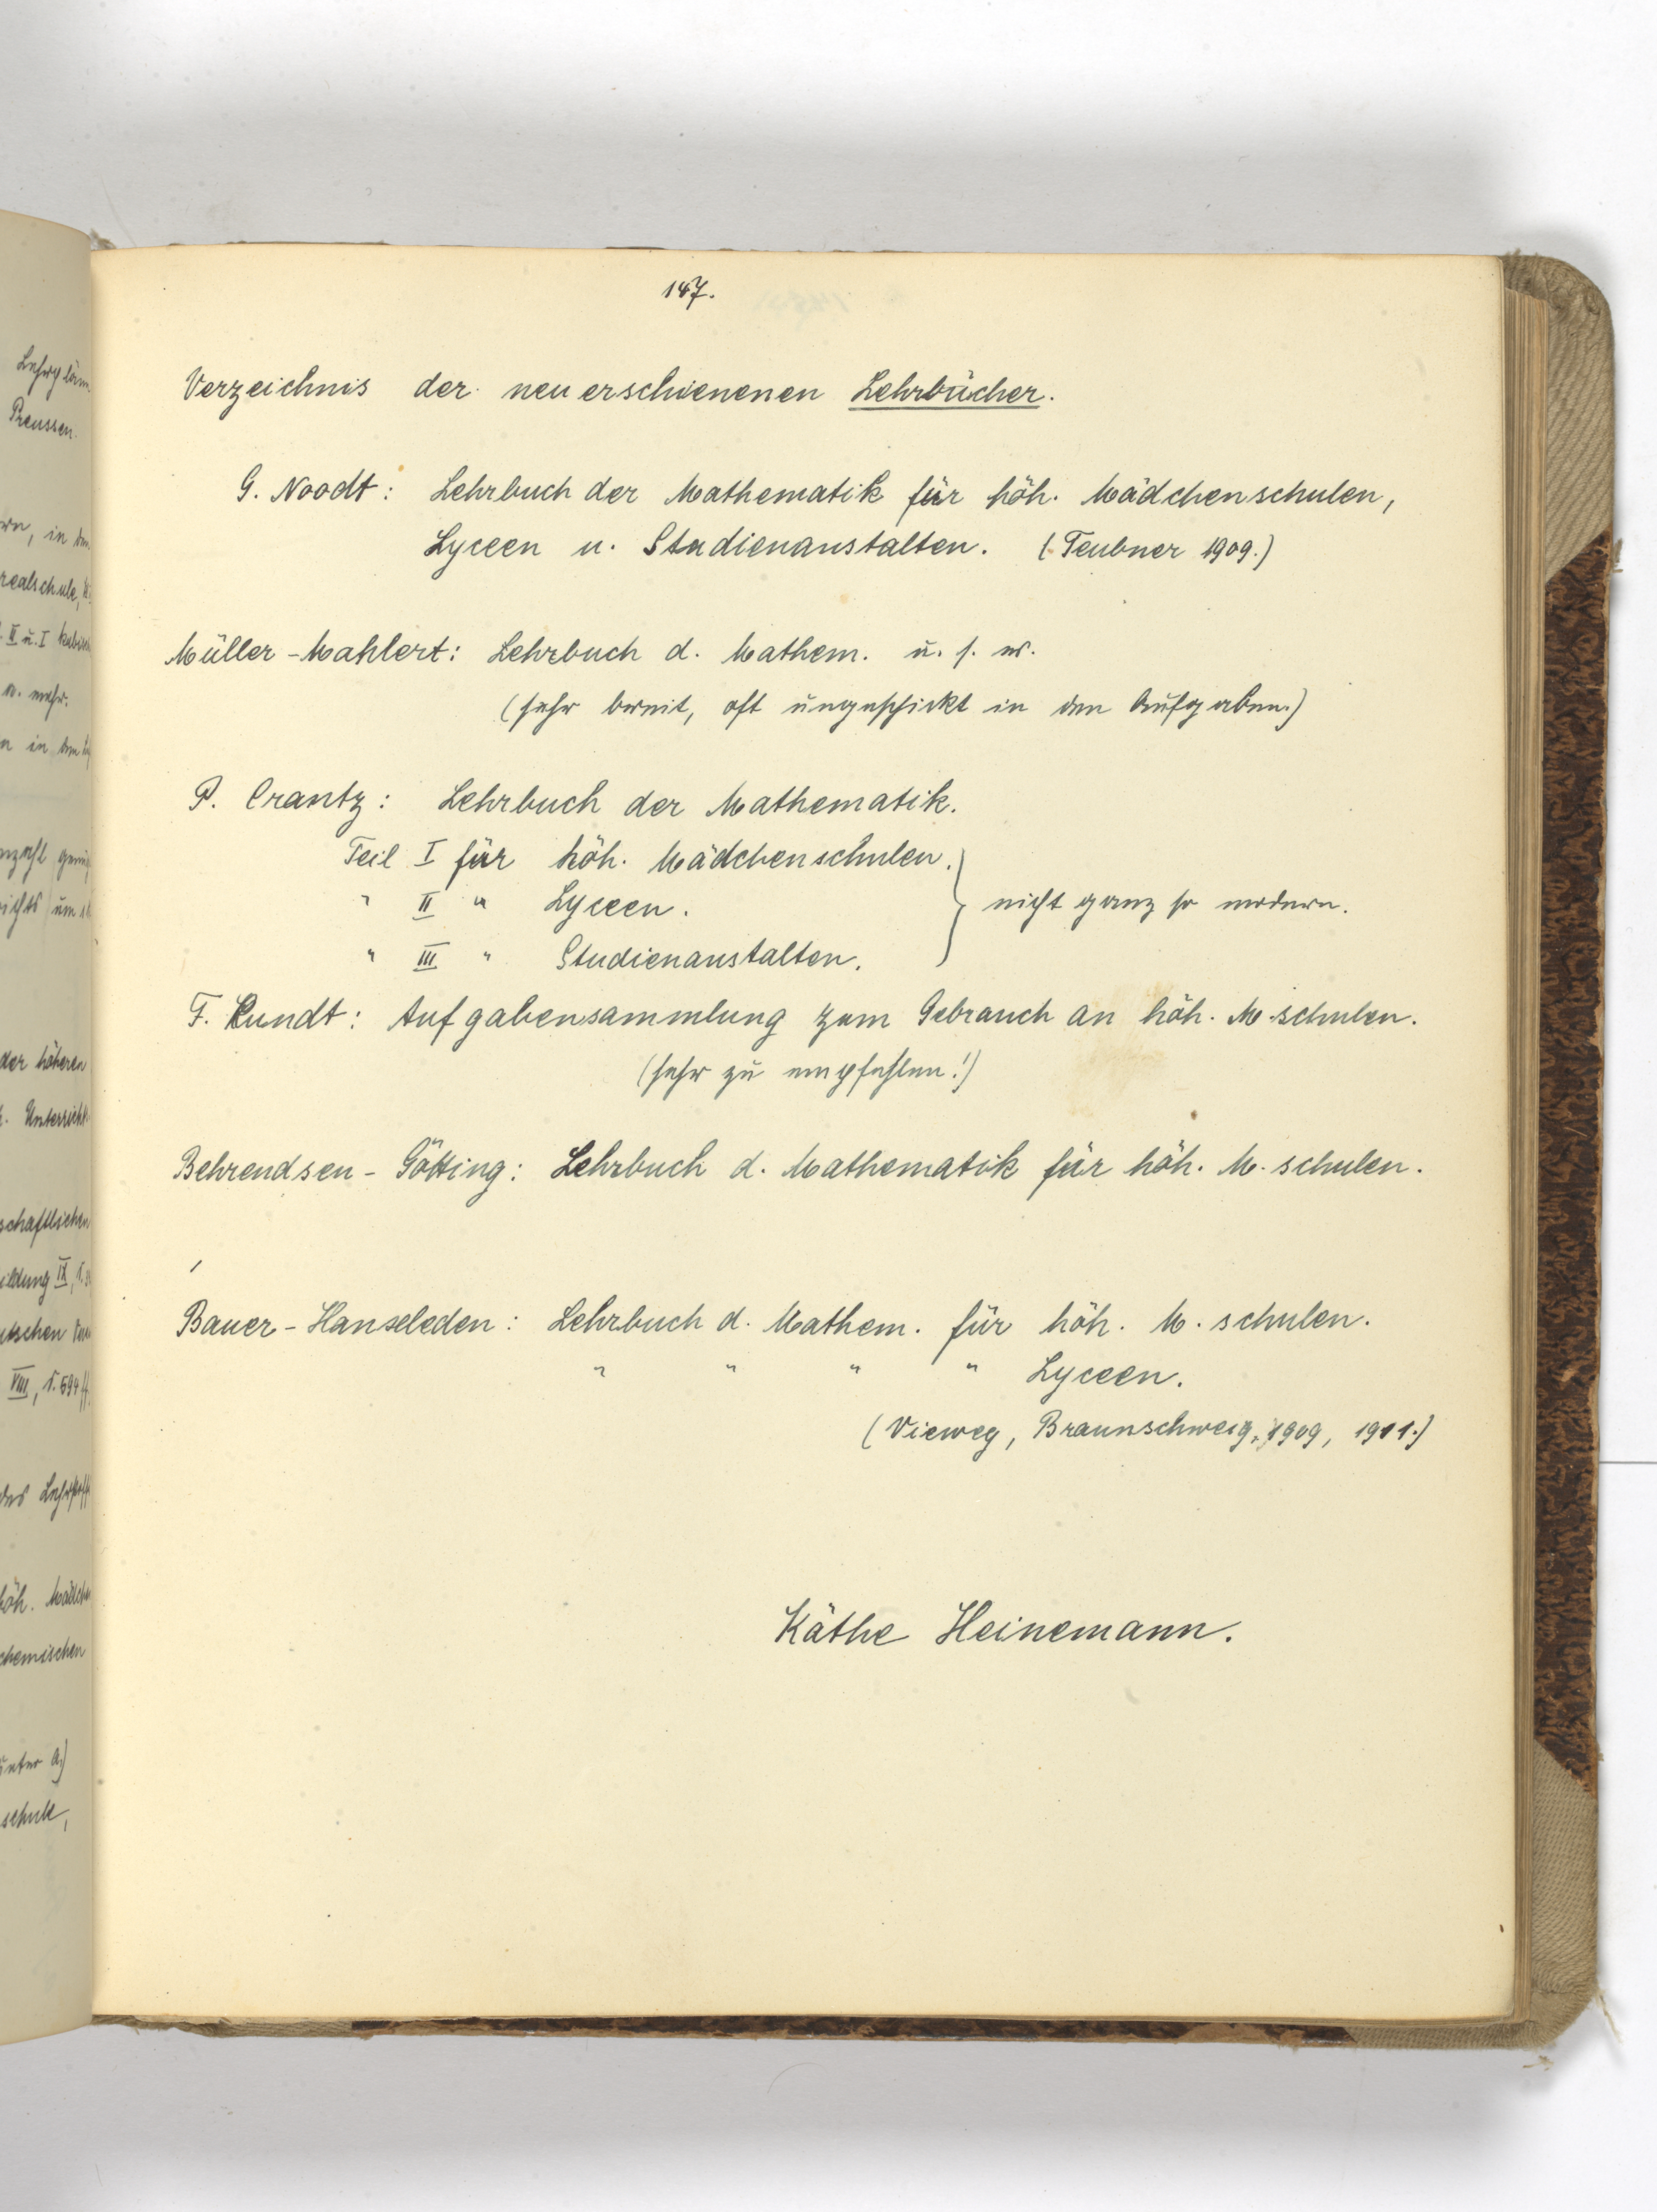 147.
Verzeichnis der neuerschienenen Lehrbücher.
G. Noodt: Lehrbuch der Mathematik für höh. Mädchenschulen,
Lyceen u. Studienanstalten. (Teubner 1909.)
Müller-Mahlert: Lehrbuch d. Mathem. u. s. w.
(sehr breit, oft ungeschickt in den Aufgaben.)
P. Crantz: Lehrbuch der Mathematik.
Teil I für höh. Mädchenschulen.
" II " Lyceen. } nicht ganz so modern.
" III " Studienanstalten.
F. Kundt: Aufgabensammlung zum Gebrauch an höh. M.schulen.
(sehr zu empfehlen!)
Behrendsen-Götting: Lehrbuch d. Mathematik für höh. M. schulen.
Bauer-Hanxleden: Lehrbuch d. Mathem. für höh. M. schulen.
" " " " Lyceen.
(Vieweg, Braunschweig, 1909, 1911.)
Käthe Heinemann.
Preussen.
realschule,
II u. I
u. mehr.
der höheren
Unterricht
VIII, S. 594 ff.
höh.
chemischen
unter A)
schule,